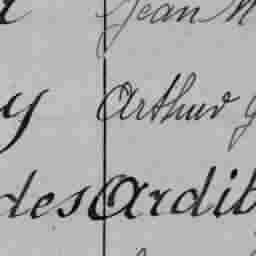 Jean M
y Arthur J
des Ardit